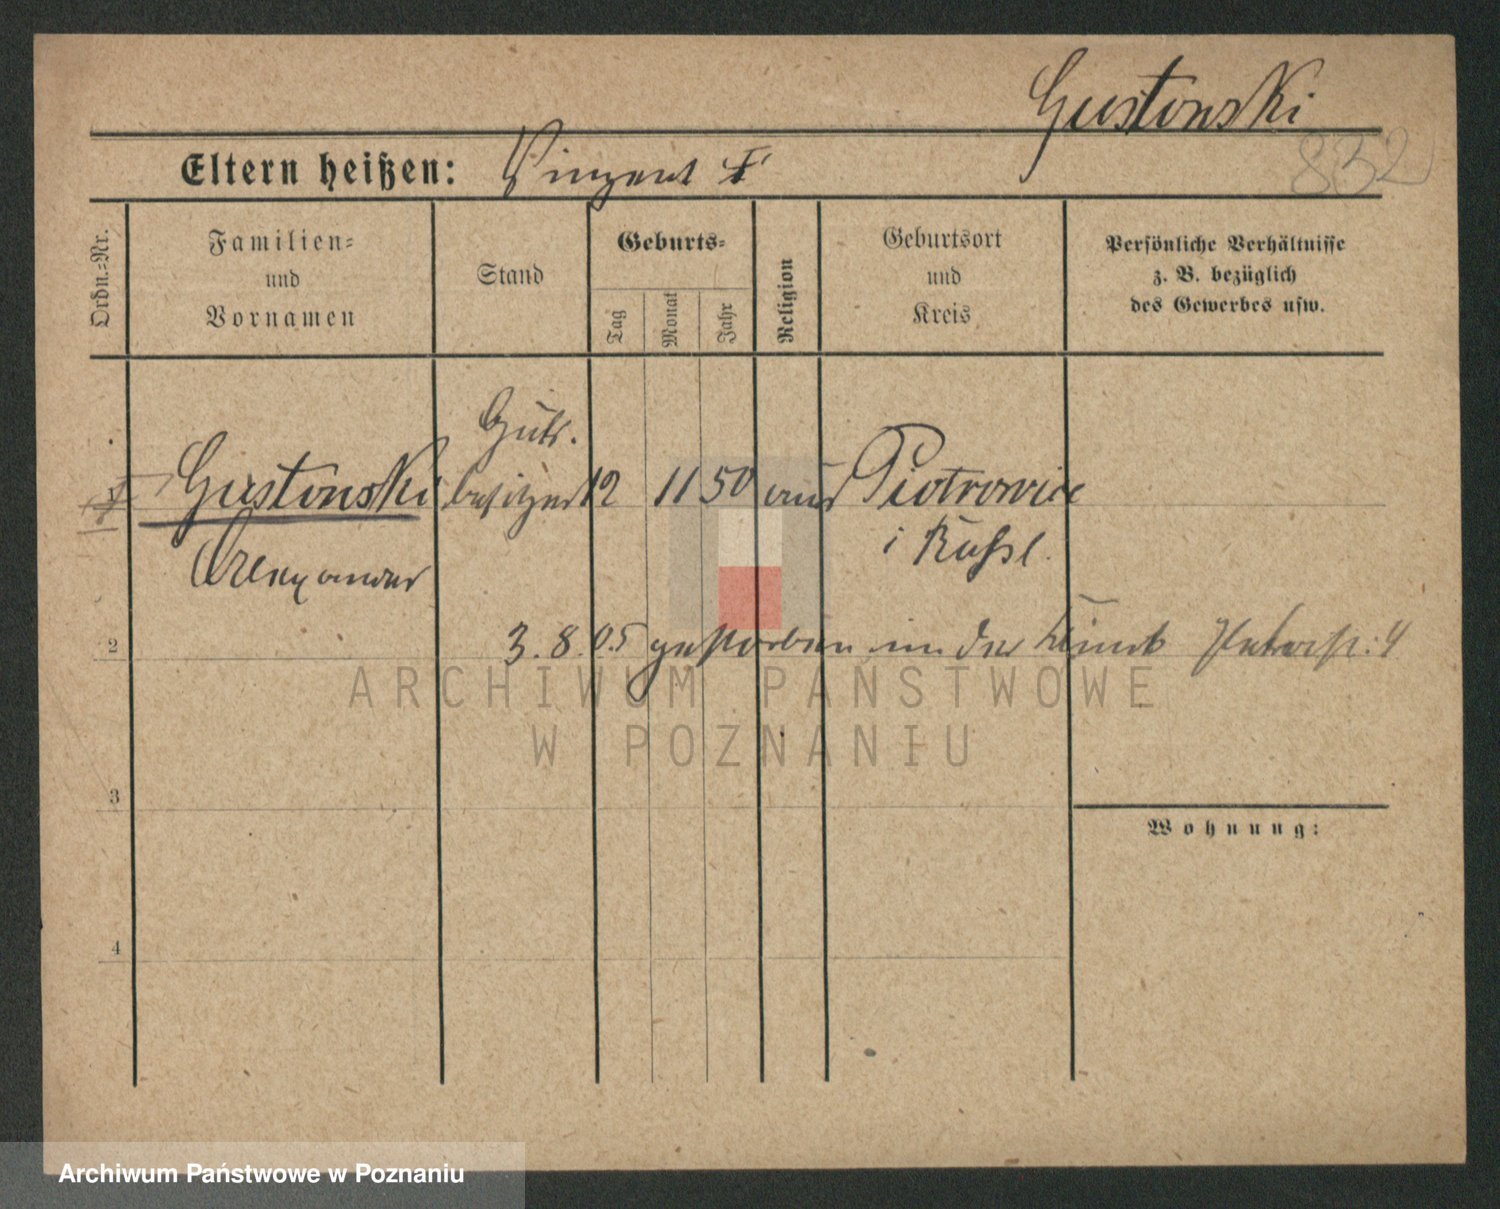 Gustonski
832
Eltern heißen: Vinzent †
Ordn.=Nr.
Familien= und Vornamen
Stand
Geburts=
Tag
Monat
Jahr
Religion
Geburtsort und Kreis
Persönliche Verhältnisse z. B. bezüglich des Gewerbes usw.
Guts.
† Gustonski besitzer 12 11 50 aus Piotrowice
Alexander i Rußl.
2 3. 8. 05 gestorben in der
3
Wohnung:
4
ARCHIWUM PAŃSTWOWE
W POZNANIU
Archiwum Państwowe w Poznaniu